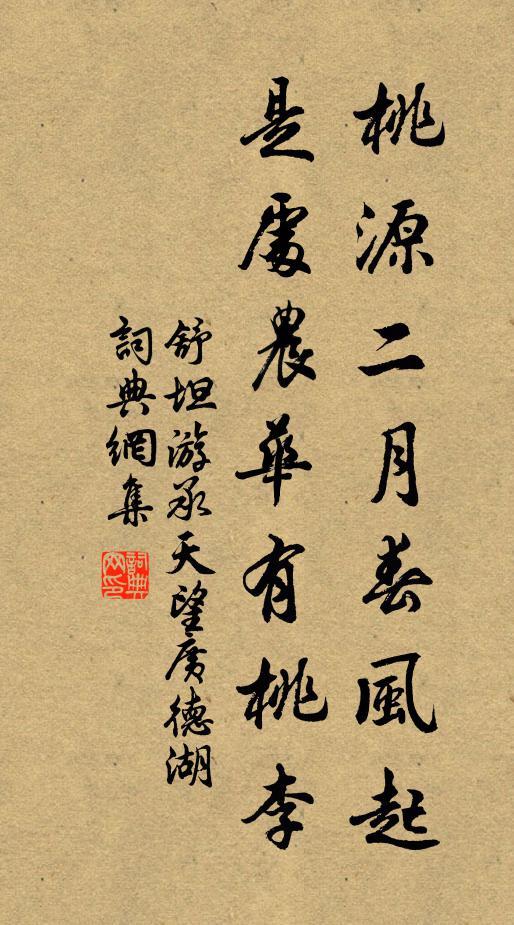 桃源二月春風起
是處農華有桃李
舒坦游承天望廣德湖
詞典網集
詞典網印